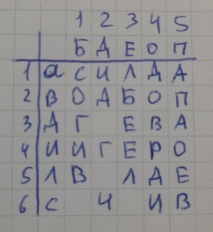 1 2 3 4 5
Б Д Е О П
1 а С И Л Д А
2 В О Д Б О П
3 Д Г Е В А
4 И И Г Е Р О
5 Л В Л Д Е
6 С Ч И В